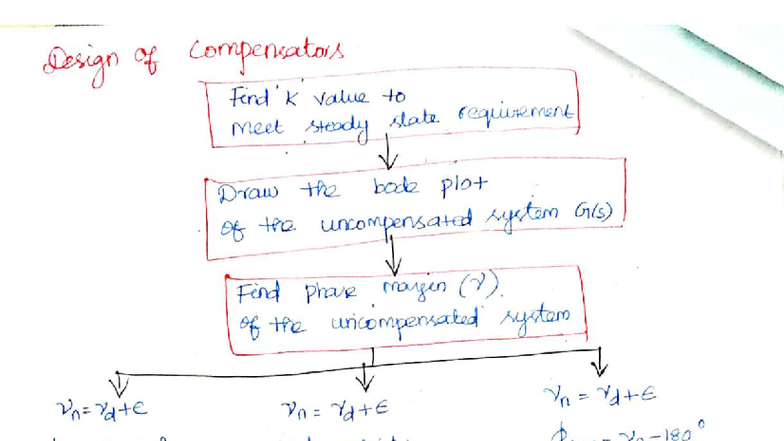 Design of Compensators
Find K value to
meet steady state requirement
Draw the bode plot
of the uncompensated system G(s)
Find phase margin (γ).
of the uncompensated system
γn = γd + ϵ
γn = γd + ϵ
γn = γd + ϵ
γn - 180°